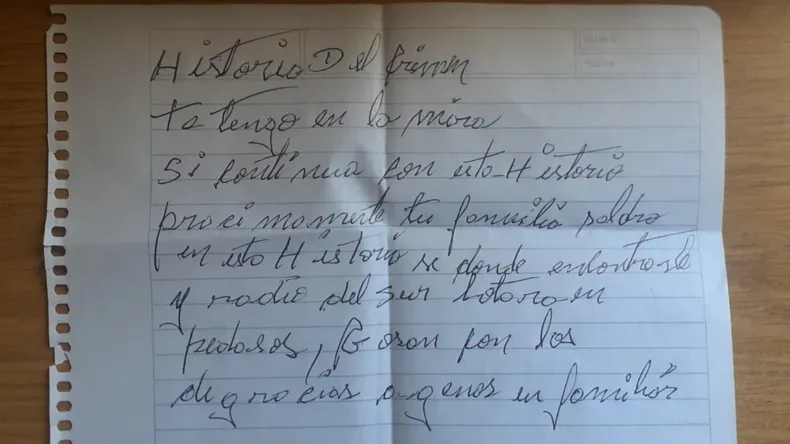 Historia Del Crimen
te tengo en la mira
Si continua con esta Historia
procimamente tu familia saldra
en esta Historia se donde encontrarte
y radio del sur botara en
pedasos, Gosan con las
degracias agenas en familiar